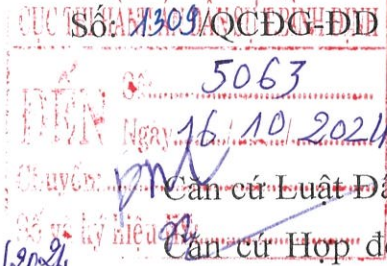 Số: 1309/QCĐG-ĐD
ĐẾN
Số: 5063
Ngày 16/10/2024
Chuyển:
Căn cứ Luật Đấ
Số và ký hiệu
Căn cứ Hợp đ